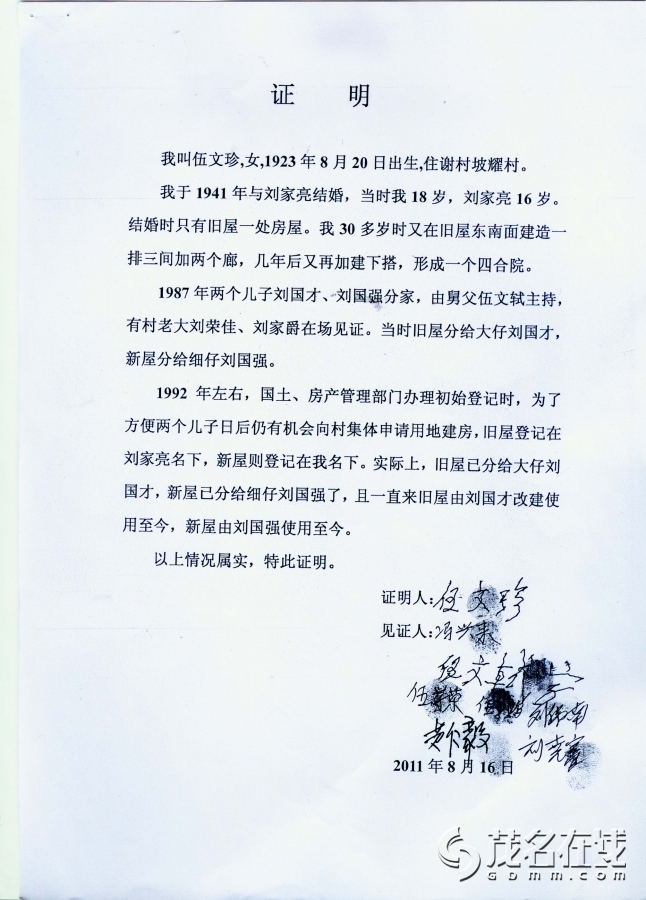 证 明
我叫伍文珍,女,1923年8月20日出生,住谢村坡耀村。
我于1941年与刘家亮结婚，当时我18岁，刘家亮16岁。
结婚时只有旧屋一处房屋。我30多岁时又在旧屋东南面建造一
排三间加两个廊，几年后又再加建下搭，形成一个四合院。
1987年两个儿子刘国才、刘国强分家，由舅父伍文轼主持，
有村老大刘荣佳、刘家爵在场见证。当时旧屋分给大仔刘国才，
新屋分给细仔刘国强。
1992 年左右，国土、房产管理部门办理初始登记时，为了
方便两个儿子日后仍有机会向村集体申请用地建房，旧屋登记在
刘家亮名下，新屋则登记在我名下。实际上，旧屋已分给大仔刘
国才，新屋已分给细仔刘国强了，且一直来旧屋由刘国才改建使
用至今，新屋由刘国强使用至今。
以上情况属实，特此证明。
证明人:伍文珍
见证人:冯兴来
2011年8月16日
茂名在线
Gdmm.com